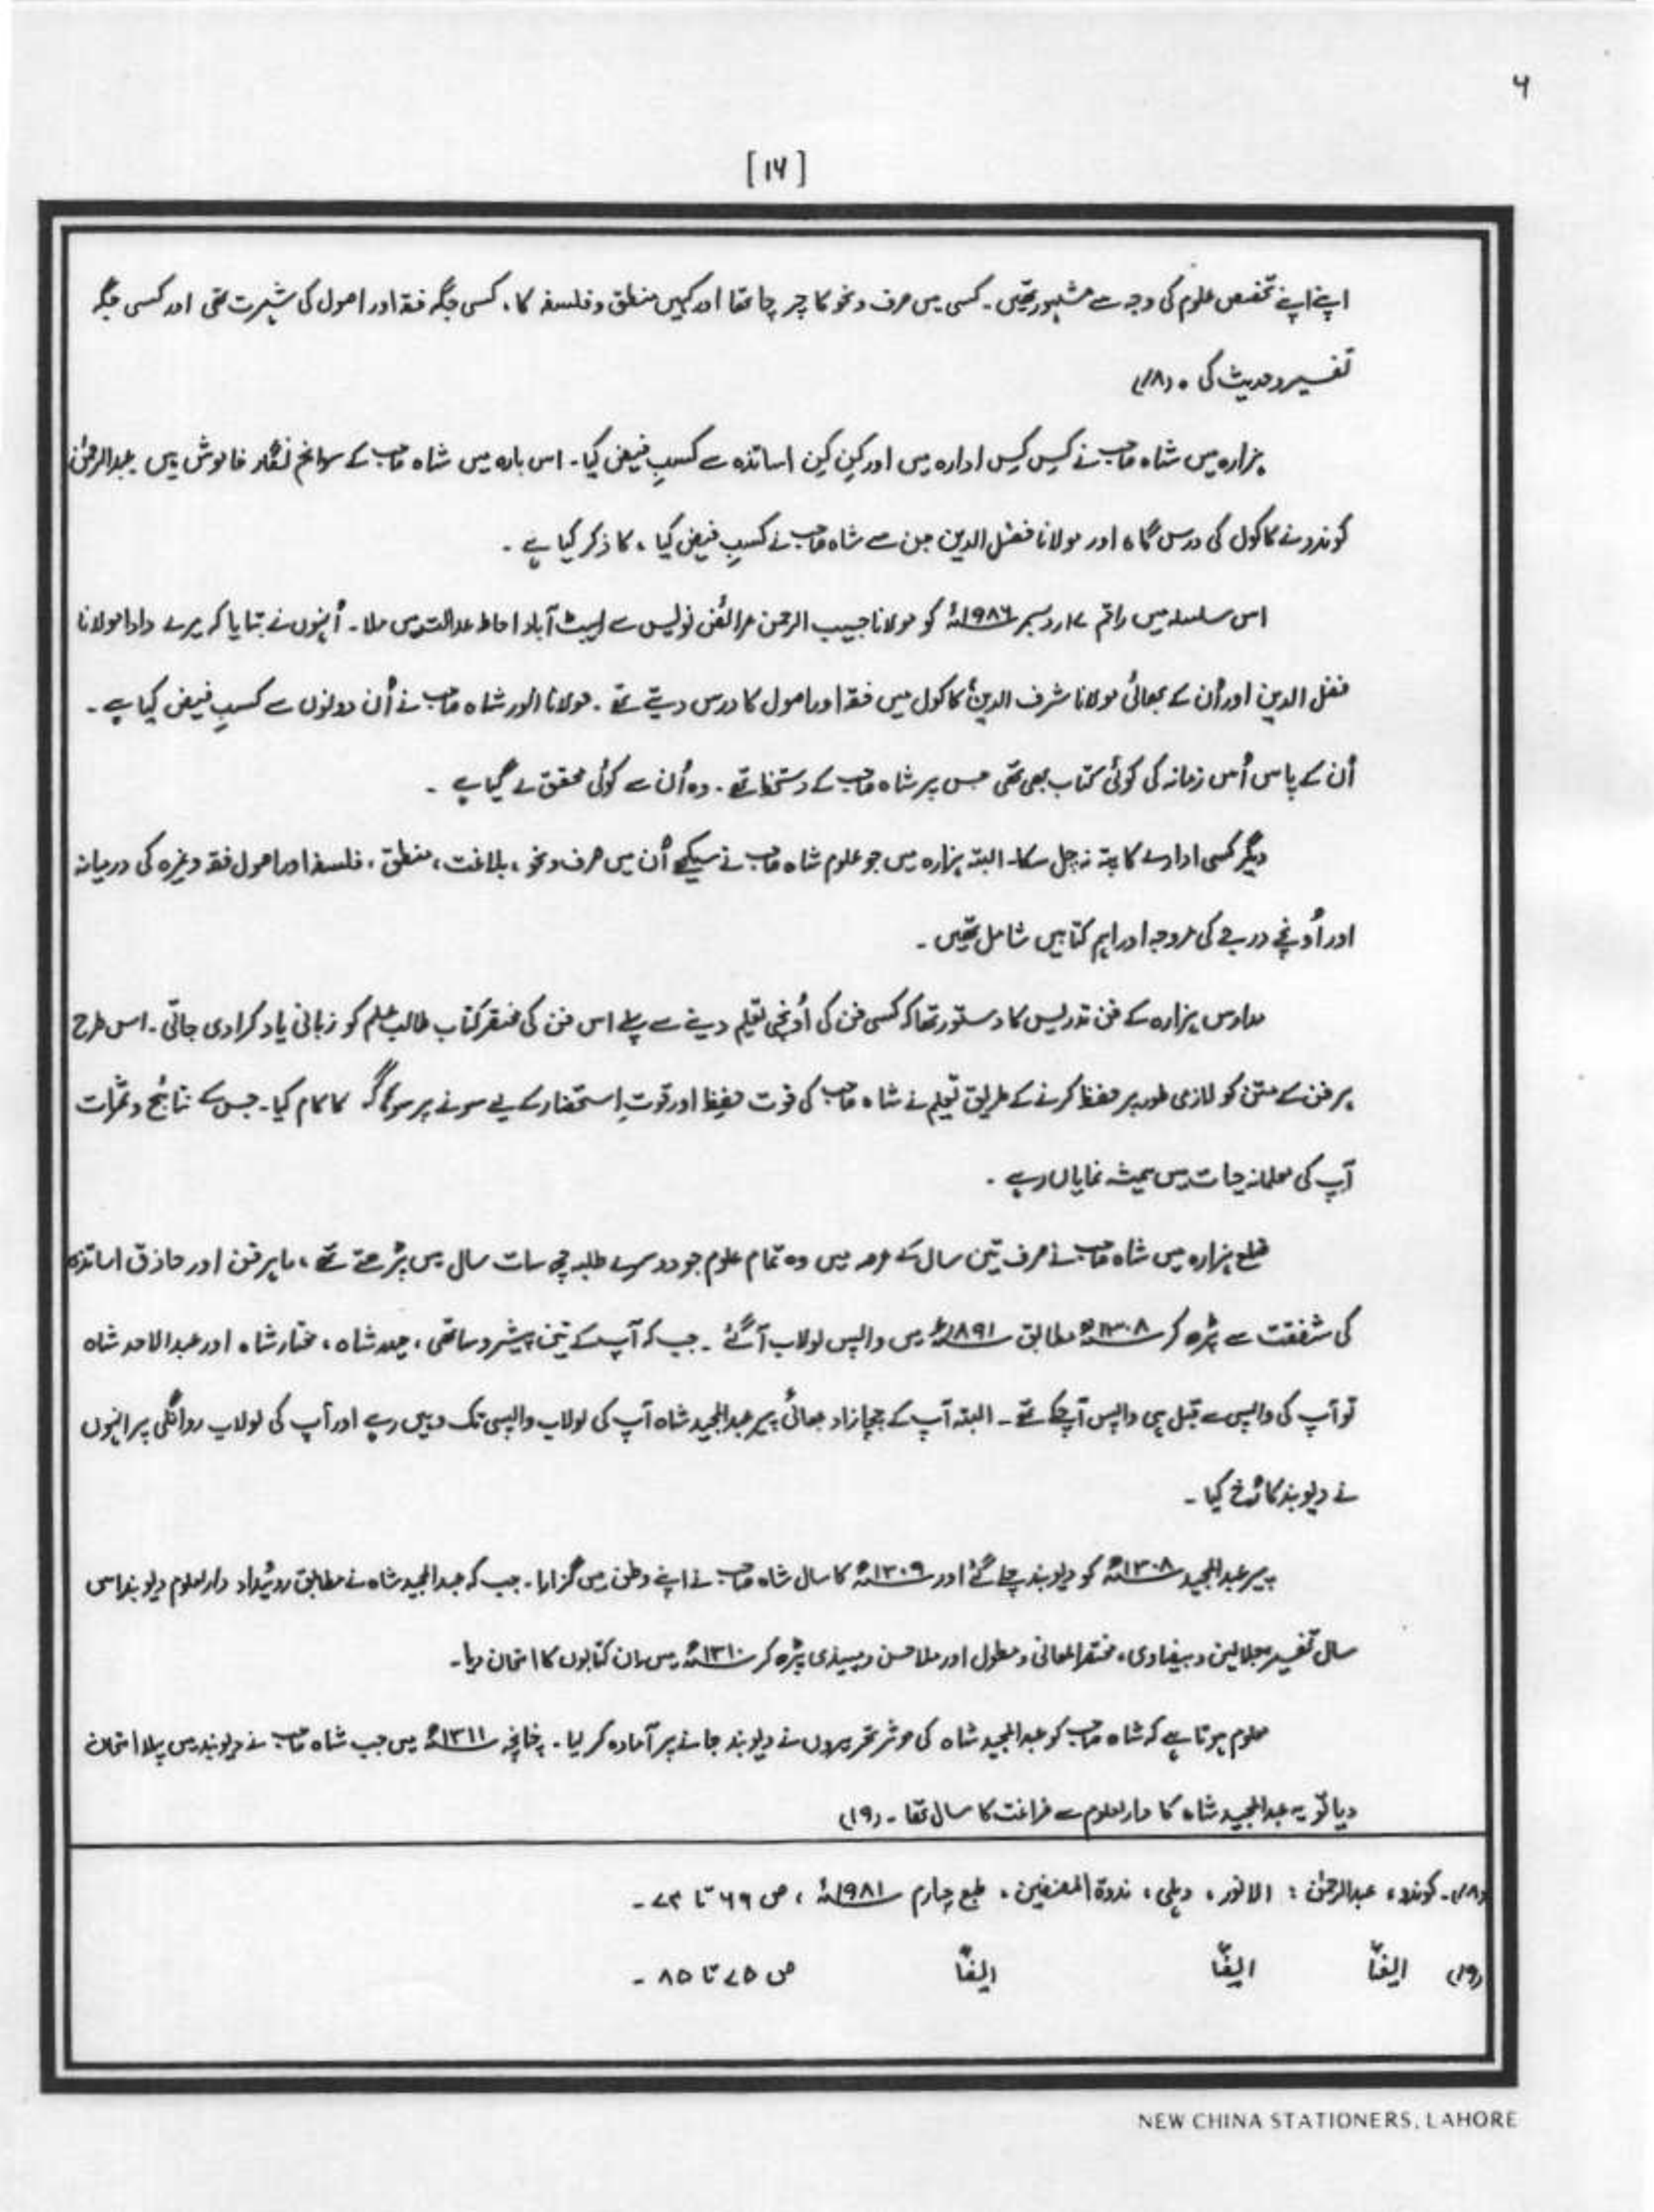 ۶
[۱۶]
اپنے اپنے تخصص علوم کی وجہ سے مشہور تھیں ۔ کسی میں صرف و نحو کا چرچا تھا اور کہیں منطق و فلسفہ کا ، کسی جگہ فقہ اور اصول کی شہرت تھی اور کسی جگہ
تفسیر و حدیث کی ۔ (۱۸)
ہزارہ میں شاہ صاحب نے کِس کِس ادارہ میں اور کِن کِن اساتذہ سے کسبِ فیض کیا ۔ اس بارہ میں شاہ صاحب کے سوانح نگار خاموش ہیں عبدالرحمٰن
کوندو نے کاکول کی درس گاہ اور مولانا فضل الدین جن سے شاہ صاحب نے کسبِ فیض کیا ، کا ذکر کیا ہے ۔
اس سلسلہ میں راقم ۱۷ر دسمبر ۱۹۸۶ء کو مولانا حبیب الرحمن عرائض نولیس سے ایبٹ آباد احاطہ عدالت میں ملا ۔ اُنہوں نے بتایا کہ میرے دادا مولانا
فضل الدین اور اُن کے بھائی مولانا شرف الدینؒ کاکول میں فقہ اور اصول کا درس دیتے تھے ۔ مولانا انور شاہ صاحب نے اُن دونوں سے کسبِ فیض کیا ہے ۔
اُن کے پاس اُس زمانہ کی کوئی کتاب بھی تھی جس پر شاہ صاحب کے دستخط تھے ۔ وہ اُن سے کوئی محقق لے گیا ہے ۔
دیگر کسی ادارے کا پتہ نہ چل سکا ۔ البتہ ہزارہ میں جو علوم شاہ صاحب نے سیکھے اُن میں صرف و نحو ، بلاغت ، منطق ، فلسفہ اور اصول فقہ وغیرہ کی درمیانہ
اور اُونچے درجے کی مروجہ اور اہم کتابیں شامل تھیں ۔
مدارس ہزارہ کے فن تدریس کا دستور تھا کہ کسی فن کی اُونچی تعلیم دینے سے پہلے اس فن کی مختصر کتاب طالب علم کو زبانی یاد کرا دی جاتی ۔ اس طرح
ہر فن کے متن کو لازمی طور پر حفظ کرنے کے طریق تعلیم نے شاہ صاحب کی قوت حفِظ اور قوتِ استحضار کے لیے سونے پر سہاگہ کا کام کیا ۔ جس کے نتائج و ثمرات
آپ کی معلمانہ حیات میں ہمیشہ نمایاں رہے ۔
ضلع ہزارہ میں شاہ صاحب نے صرف تین سال کے عرصہ میں وہ تمام علوم جو دوسرے طلبہ چھ سات سال میں پڑھتے تھے ، ماہر فن اور حاذق اساتذہ
کی شفقت سے پڑھ کر ۱۳۰۸ھ مطابق ۱۸۹۱ء میں واپس لولاب آگئے ۔ جب کہ آپ کے تین پیشرو ساتھی ، حیدر شاہ ، مختار شاہ اور عبدالاحد شاہ
تو آپ کی واپس سے قبل ہی واپس آچکے تھے ۔ البتہ آپ کے چچازاد بھائی پیر عبدالمجید شاہ آپ کی لولاب واپسی تک وہیں رہے اور آپ کی لولاب روانگی پر انہوں
نے دیوبند کا رُخ کیا ۔
پیر عبدالمجید ۱۳۰۸ھ کو دیوبند چلے گئے اور ۱۳۰۹ھ کا سال شاہ صاحب نے اپنے وطن میں گزارا ۔ جب کہ عبدالمجید شاہ نے مطابق روئیداد دارالعلوم دیوبند اسی
سال تفسیر جلالین و بیضاوی ، مختصر المعانی و مطول اور ملا حسن و میبذی پڑھ کر ۱۳۱۰ھ میں ان کتابوں کا امتحان دیا ۔
معلوم ہوتا ہے کہ شاہ صاحب کو عبدالمجید شاہ کی موثر تحریروں نے دیوبند جانے پر آمادہ کر لیا ۔ چنانچہ ۱۳۱۱ھ میں جب شاہ صاحب نے دیوبند میں پہلا امتحان
دیا تو یہ عبدالمجید شاہ کا دارالعلوم سے فراغت کا سال تھا ۔ (۱۹)
(۱۸) ۔ کوندو ، عبدالرحمٰن : الانور ، دہلی ، ندوۃ المصنفین ، طبع چہارم ۱۹۸۱ء ، ص ۶۹ تا ۷۳ ۔
(۱۹) ایضاً ایضاً ایضاً ص ۷۵ تا ۸۵ ۔
NEW CHINA STATIONERS, LAHORE